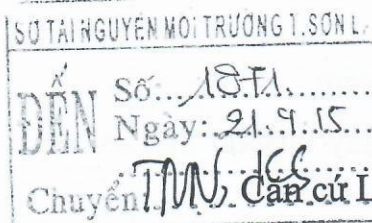 SỞ TÀI NGUYÊN MÔI TRƯỜNG T.SƠN L
ĐẾN
Số:
Ngày: 21.9.15
Chuyển: TNN, Căn cứ L